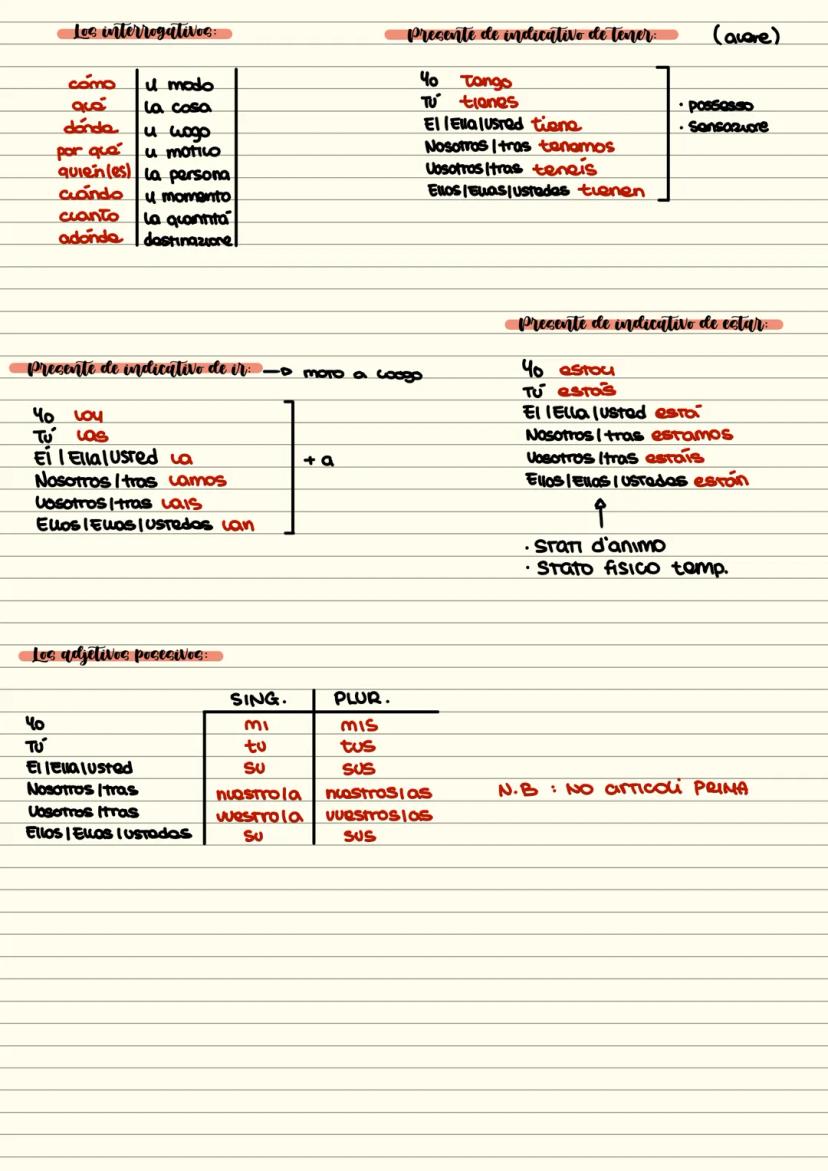 Los interrogativos:
cómo il modo
qué la cosa
dónde il luogo
por qué il motivo
quién(es) la persona
cuándo il momento
cuanto la quantità
adónde destinazione
Presente de indicativo de tener: (avere)
Yo Tengo
Tú tienes
El | Ella | Usted tiene
Nosotros | tras tenemos
Vosotros | tras tenéis
Ellos | Ellas | ustedes tienen
· possesso
· sensazione
Presente de indicativo de ir: → moto a luogo
Yo voy
Tú vas
Él | Ella | Usted va
Nosotros | tras vamos
Vosotros | tras vais
Ellos | Ellas | Ustedes van
+ a
Presente de indicativo de estar:
Yo estoy
Tú estás
El | Ella | Usted está
Nosotros | tras estamos
Vosotros | tras estáis
Ellos | Ellas | Ustedes están
· Stati d'animo
· Stato fisico temp.
Los adjetivos posesivos:
SING. PLUR.
Yo mi mis
Tú tu tus
El | Ella | usted su sus
Nosotros | tras nuestro | a nuestros | as
Vosotros | tras vuestro | a vuestros | as
Ellos | Ellas | ustedes su sus
N.B : NO articoli PRIMA